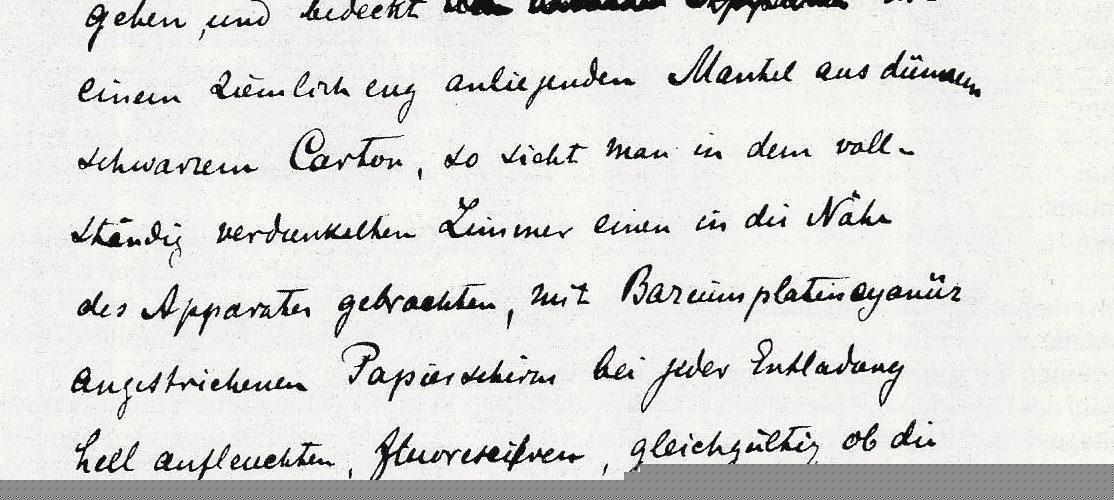 gehen, und bedeckt
einem ziemlich eng anliejenden Mantel aus dünnem
schwarzem Carton, so sieht man in dem voll-
ständig verdunkelten Zimmer einen in die Nähe
des Apparates gebrachten, mit Bariumplatincyanür
angestrichenen Papierschirm bei jeder Entladung
hell aufleuchten, fluoresciren, gleichgültig ob die